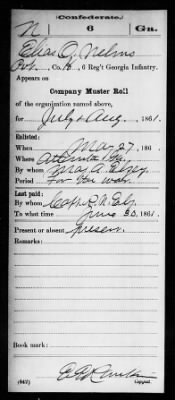 Confederate.
N 6 Ga.
Elias O. Nelms
Pvt., Co. , 6 Reg't Georgia Infantry.
Appears on
Company Muster Roll
of the organization named above,
for July & Aug, 1861.
Enlisted:
When May 27, 186 .
Where Atlanta Ga
By whom Maj. A.
Period For the war
Last paid:
By whom Capt.
To what time June 30, 1861.
Present or absent present
Remarks:
Book mark:
(642) Copyist.